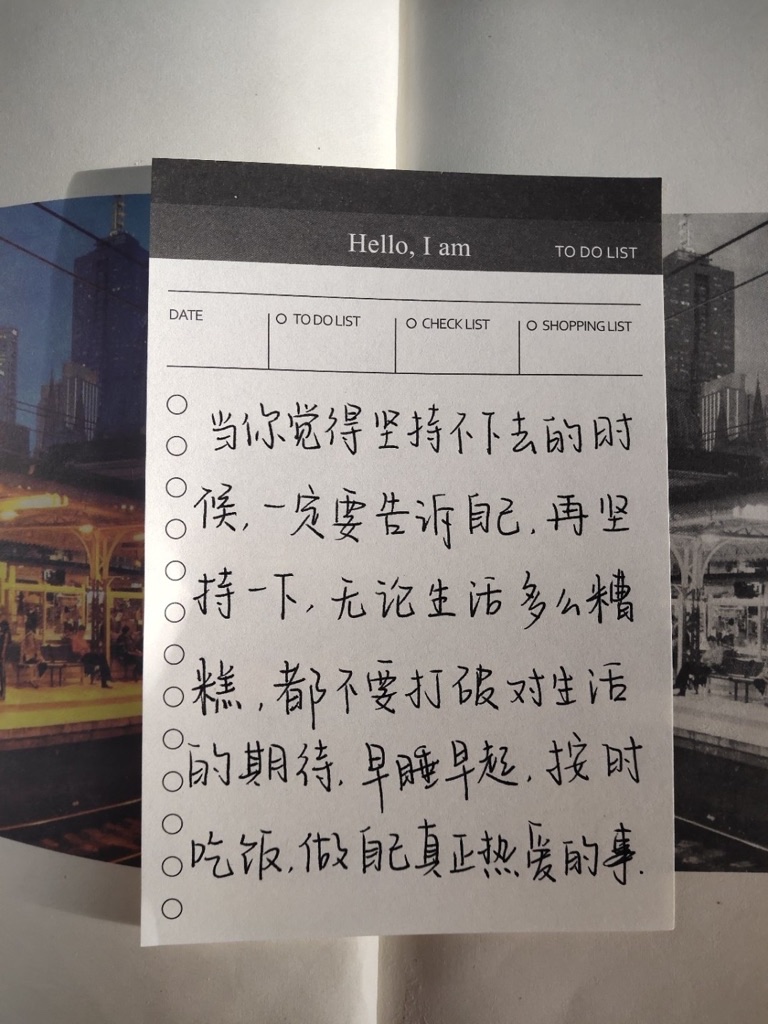 Hello, I am
TO DO LIST
DATE
TO DO LIST
CHECK LIST
SHOPPING LIST
当你觉得坚持不下去的时
候,一定要告诉自己,再坚
持一下,无论生活多么糟
糕,都不要打破对生活
的期待,早睡早起,按时
吃饭,做自己真正热爱的事.